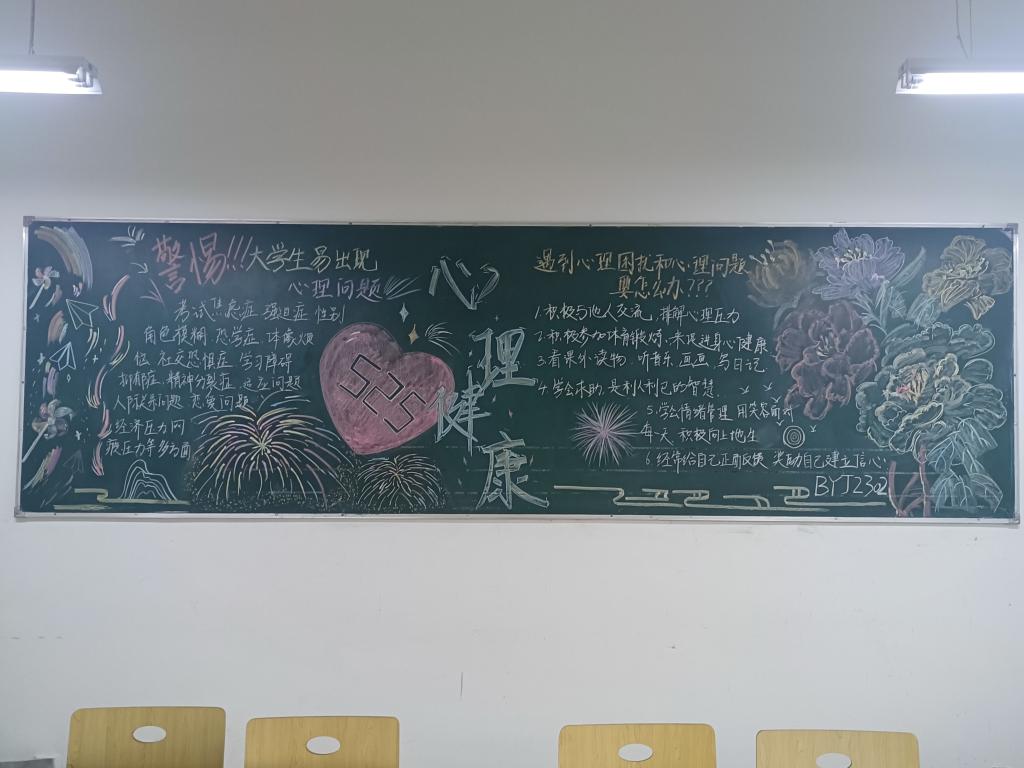 警惕!!!大学生易出现
心理问题
考试焦虑症 强迫症 性别
角色模糊 恐学症 体像烦
恼 社交恐惧症 学习障碍
抑郁症 精神分裂症 适应问题
人际关系问题 恋爱问题
经济压力网
疲压力等多方面
525
心
理
健
康
遇到心理困扰和心理问题
要怎么办???
1.积极与他人交流,排解心理压力
2.积极参加体育锻炼,来促进身心健康
3.看课外读物,听音乐,画画,写日记
4.学会求助,是利人利己的智慧.
5.学会情绪管理 用笑容面对
每天 积极向上地生
6.经常给自己正面反馈 奖励自己建立信心
BYJ232